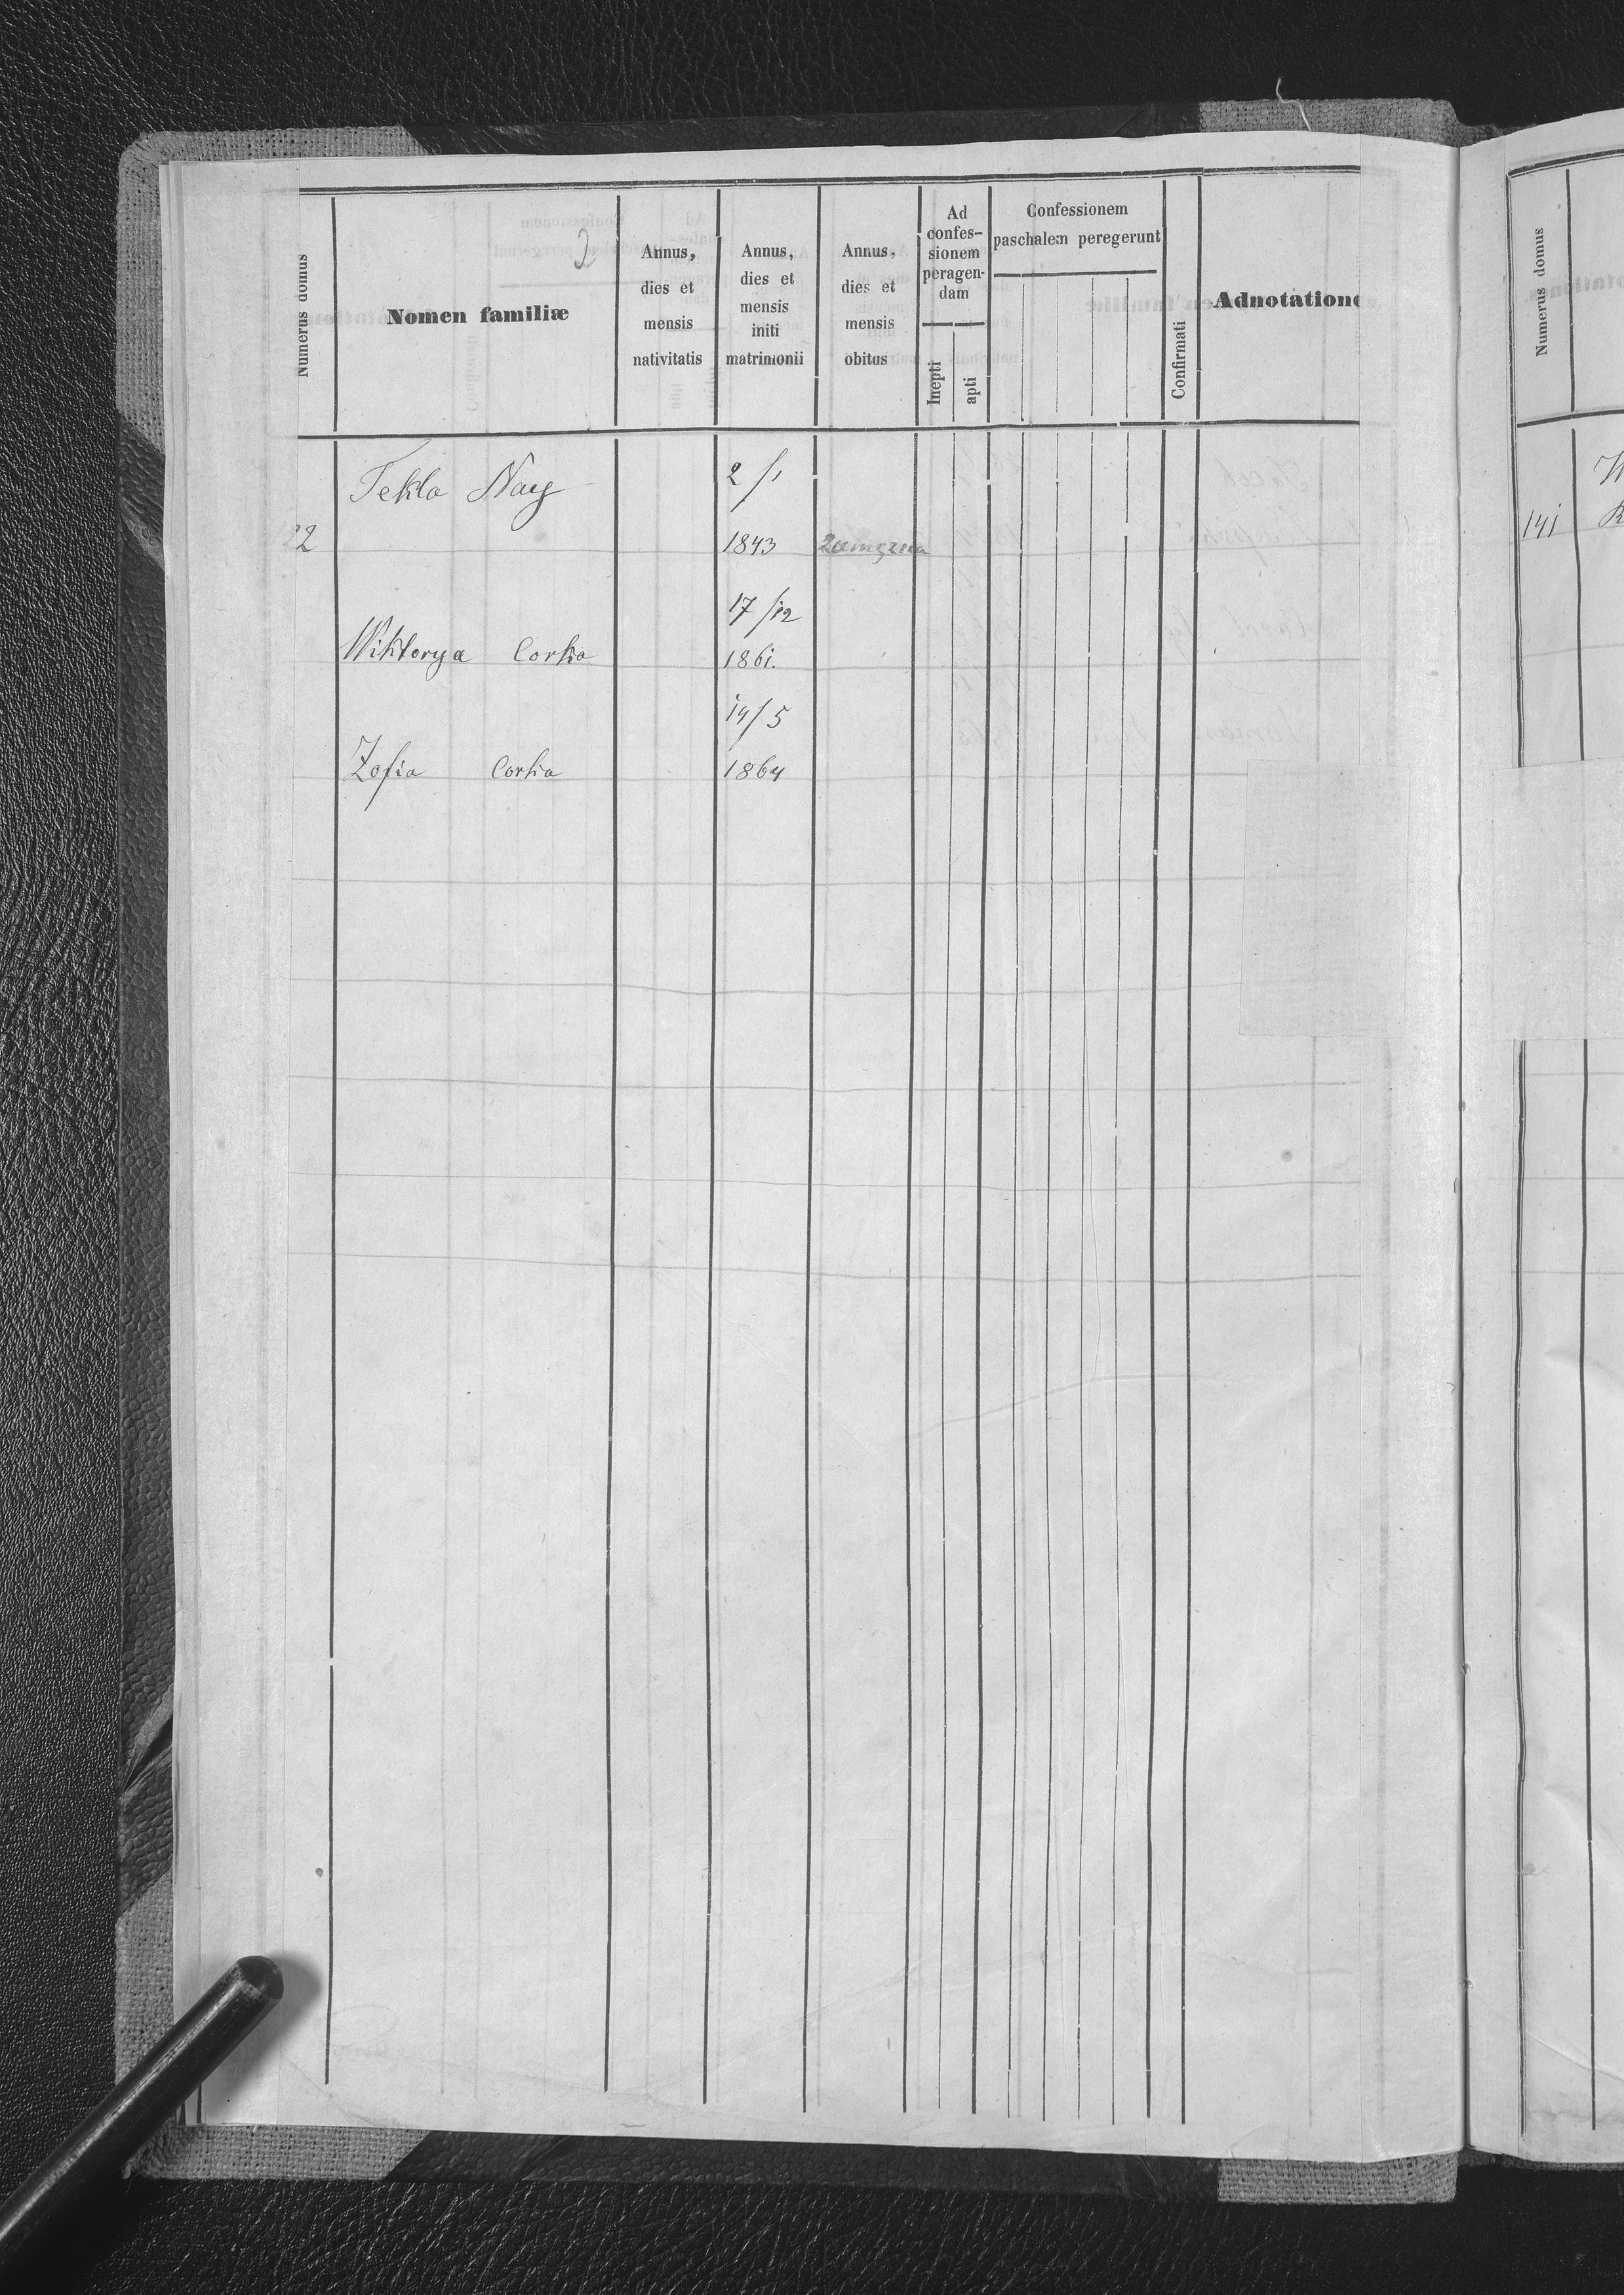 Numerus domus
Nomen familiæ
2
Annus, dies et mensis nativitatis
Annus, dies et mensis initi matrimonii
Annus, dies et mensis obitus
Ad confes-sionem peragen-dam
Inepti
apti
Confessionem paschalem peregerunt
Confirmati
Adnotatione
Tekla Nay 2/1
2 1843 zamęzna
17/12
Wiktorya Corka 1861.
14/5
Zofia Corka 1864
Numerus domus
141